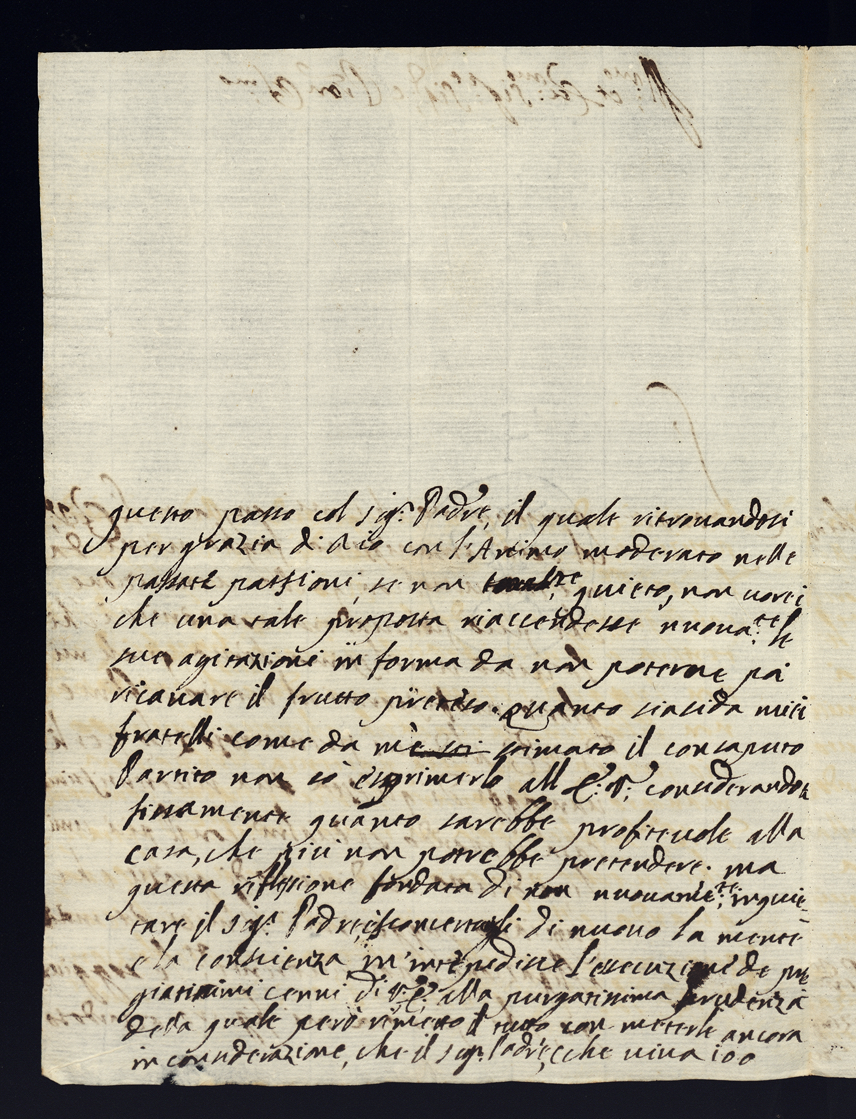 questo passo col sig.r Padre, il quale ritrovandosi
per grazia di Dio con l'Animo moderato nelle
passate passioni, se non quieto, non vorei
che una tale proposta riaccendesse nuova.te le
sue agitazioni in forma da non poterne poi
ricavare il frutto preteso. Quanto sia sida miei
fratelli come da mè stimato il consaputo
Partito non sò esprimerlo all' E. V. considerandosi
fissamente quanto sarebbe profitevole alla
casa, che più non potrebbe pretendere. ma
questa riflessione fondata di non nuovame.te inquie-
tare il sig.r Padre, e sconcertargli di nuovo la mente
e la coscienza m'impedisce l'essecuzione de pre
giatissimi cenni di V. E. alla purgatissima prudenza
della quale però rimetto il tutto con meterle ancora
in considerazione, che il sig.r Padre, che viva 100